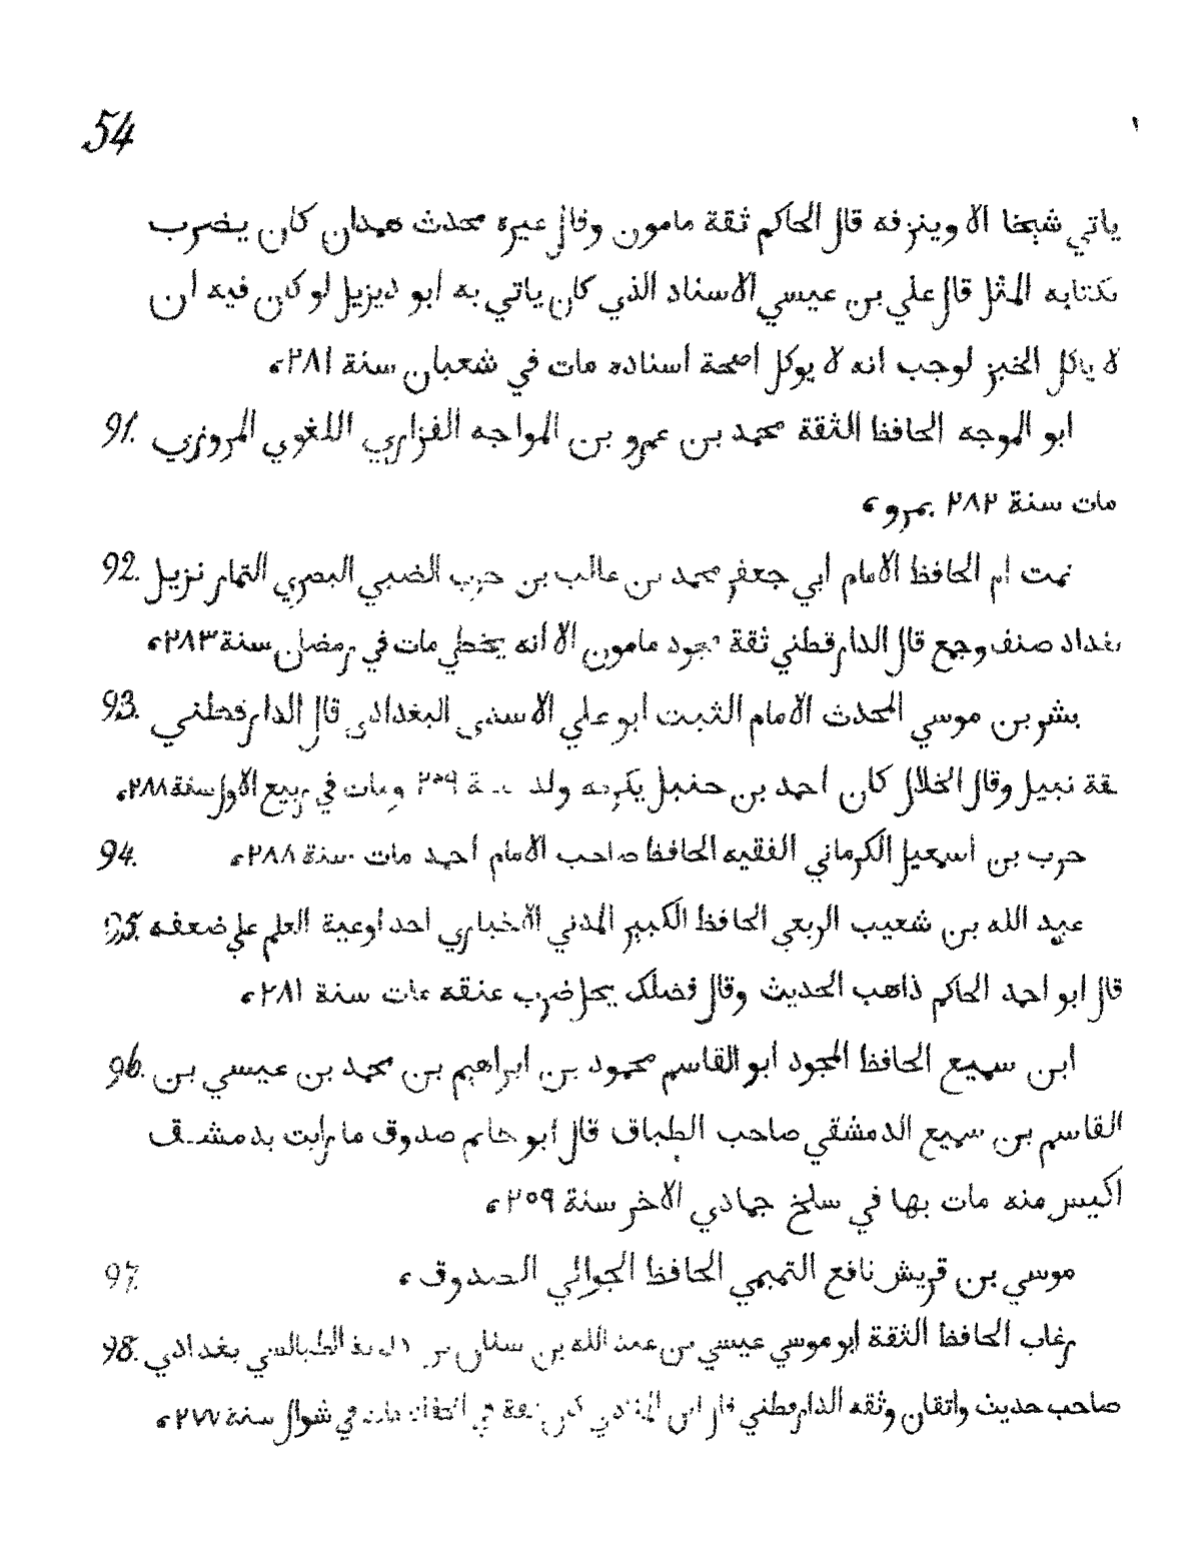 54
ياتي شيخا الا وينزفه قال الحاكم ثقة مامون وقال غيره محدث همدان كان يضرب
بكتابه المثل قال علي بن عيسي الاسناد الذي كان ياتي به ابو ديزيل لو كان فيه ان
لا ياكل الخبز لوجب انه لا يوكل لصحة اسناده مات في شعبان سنة ٢٨١ء
91. ابو الموجه الحافظ الثقة محمد بن عمرو بن المواجه الفزاري اللغوي المروزي
مات سنة ٢٨٢ بمرو ء
92. تمتام الحافظ الامام ابي جعفر محمد بن غالب بن حرب الضبي البصري التمار نزيل
بغداد صنف وجمع قال الدارقطني ثقة مجود مامون الا انه يخطي مات في رمضان سنة ٢٨٣ء
93. بشر بن موسي المحدث الامام الثبت ابو علي الاسدي البغدادي قال الدارقطني
ثقة نبيل وقال الخلال كان احمد بن حنبل يكرمه ولد سنة ومات في ربيع الاول سنة ٢٨٨ء
94. حرب بن اسمعيل الكرماني الفقيه الحافظ صاحب الامام احمد مات سنة ٢٨٨ء
95. عبد الله بن شعيب الربعي الحافظ الكبير المدني الاخباري احد اوعية العلم علي ضعفه
قال ابو احمد الحاكم ذاهب الحديث وقال فضلك يحل ضرب عنقه مات سنة ٢٨١ء
96. ابن سميع الحافظ المجود ابو القاسم محمود بن ابراهيم بن محمد بن عيسي بن
القاسم بن سميع الدمشقي صاحب الطباق قال ابو حاتم صدوق ما رايت بدمشق
اكيس منه مات بها في سلخ جمادي الاخر سنة ٢٥٩ء
97. موسي بن قريش نافع التميمي الحافظ الجوالي الصدوق ء
98. رغاب الحافظ الثقة ابو موسي عيسي بن عبد الله بن سنان بن الطيالسي بغدادي
صاحب حديث واتقان وثقه الدارقطني قال ابن المنادي مات في شوال سنة ٢٧٧ء